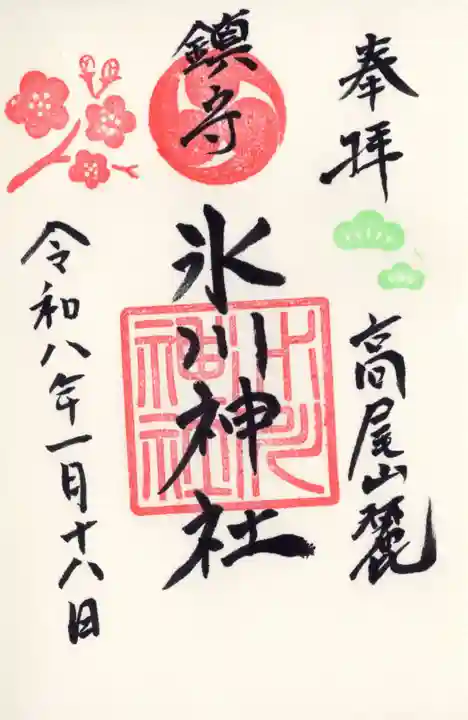 奉拝
高尾山麓
鎮守
氷川神社
氷川神社
令和八年一月十八日